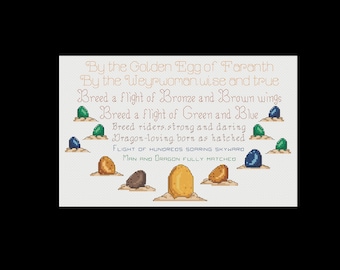 By the Golden Egg of Faranth
By the Weyrwoman, wise and true
Breed a flight of Bronze and Brown wings
Breed a flight of Green and Blue
Breed riders strong and daring
Dragon-loving, born as hatched
Flight of hundreds soaring skyward
Man and Dragon fully matched